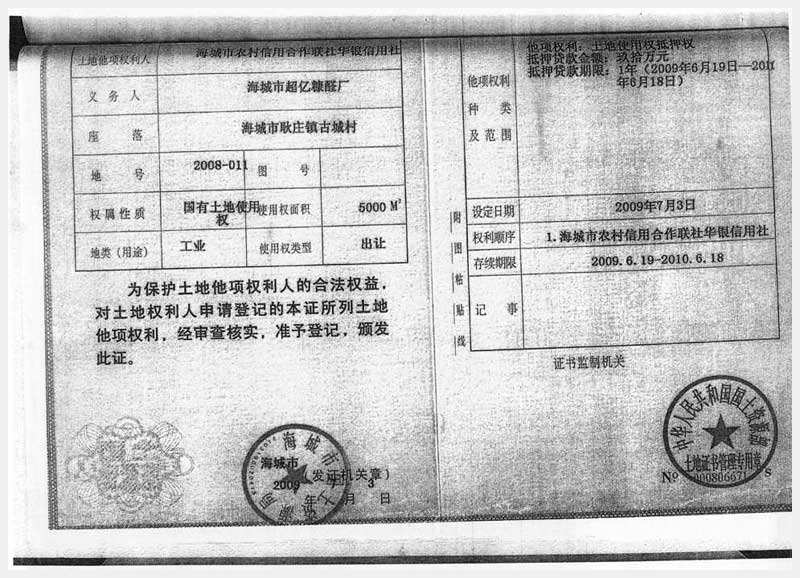 土地他项权利人 海城市农村信用合作联社华银信用社
义务人 海城市超亿糠醛厂
座落 海城市耿庄镇古城村
地号 2008-011 图号
权属性质 国有土地使用权 使用权面积 5000 M²
地类（用途） 工业 使用权类型 出让
为保护土地他项权利人的合法权益，
对土地权利人申请登记的本证所列土地
他项权利，经审查核实，准予登记，颁发
此证。
海城市
海城市
（发证机关章）
2009 年 月 3 日
附图粘贴线
他项权利种类及范围
他项权利：土地使用权抵押权
抵押贷款金额：玖拾万元
抵押贷款期限：1年（2009年6月19日—201
年6月18日）
设定日期 2009年7月3日
权利顺序 1.海城市农村信用合作联社华银信用社
存续期限 2009.6.19-2010.6.18
记事
证书监制机关
中华人民共和国国土资源部
土地证书管理专用章
Nº 000806671